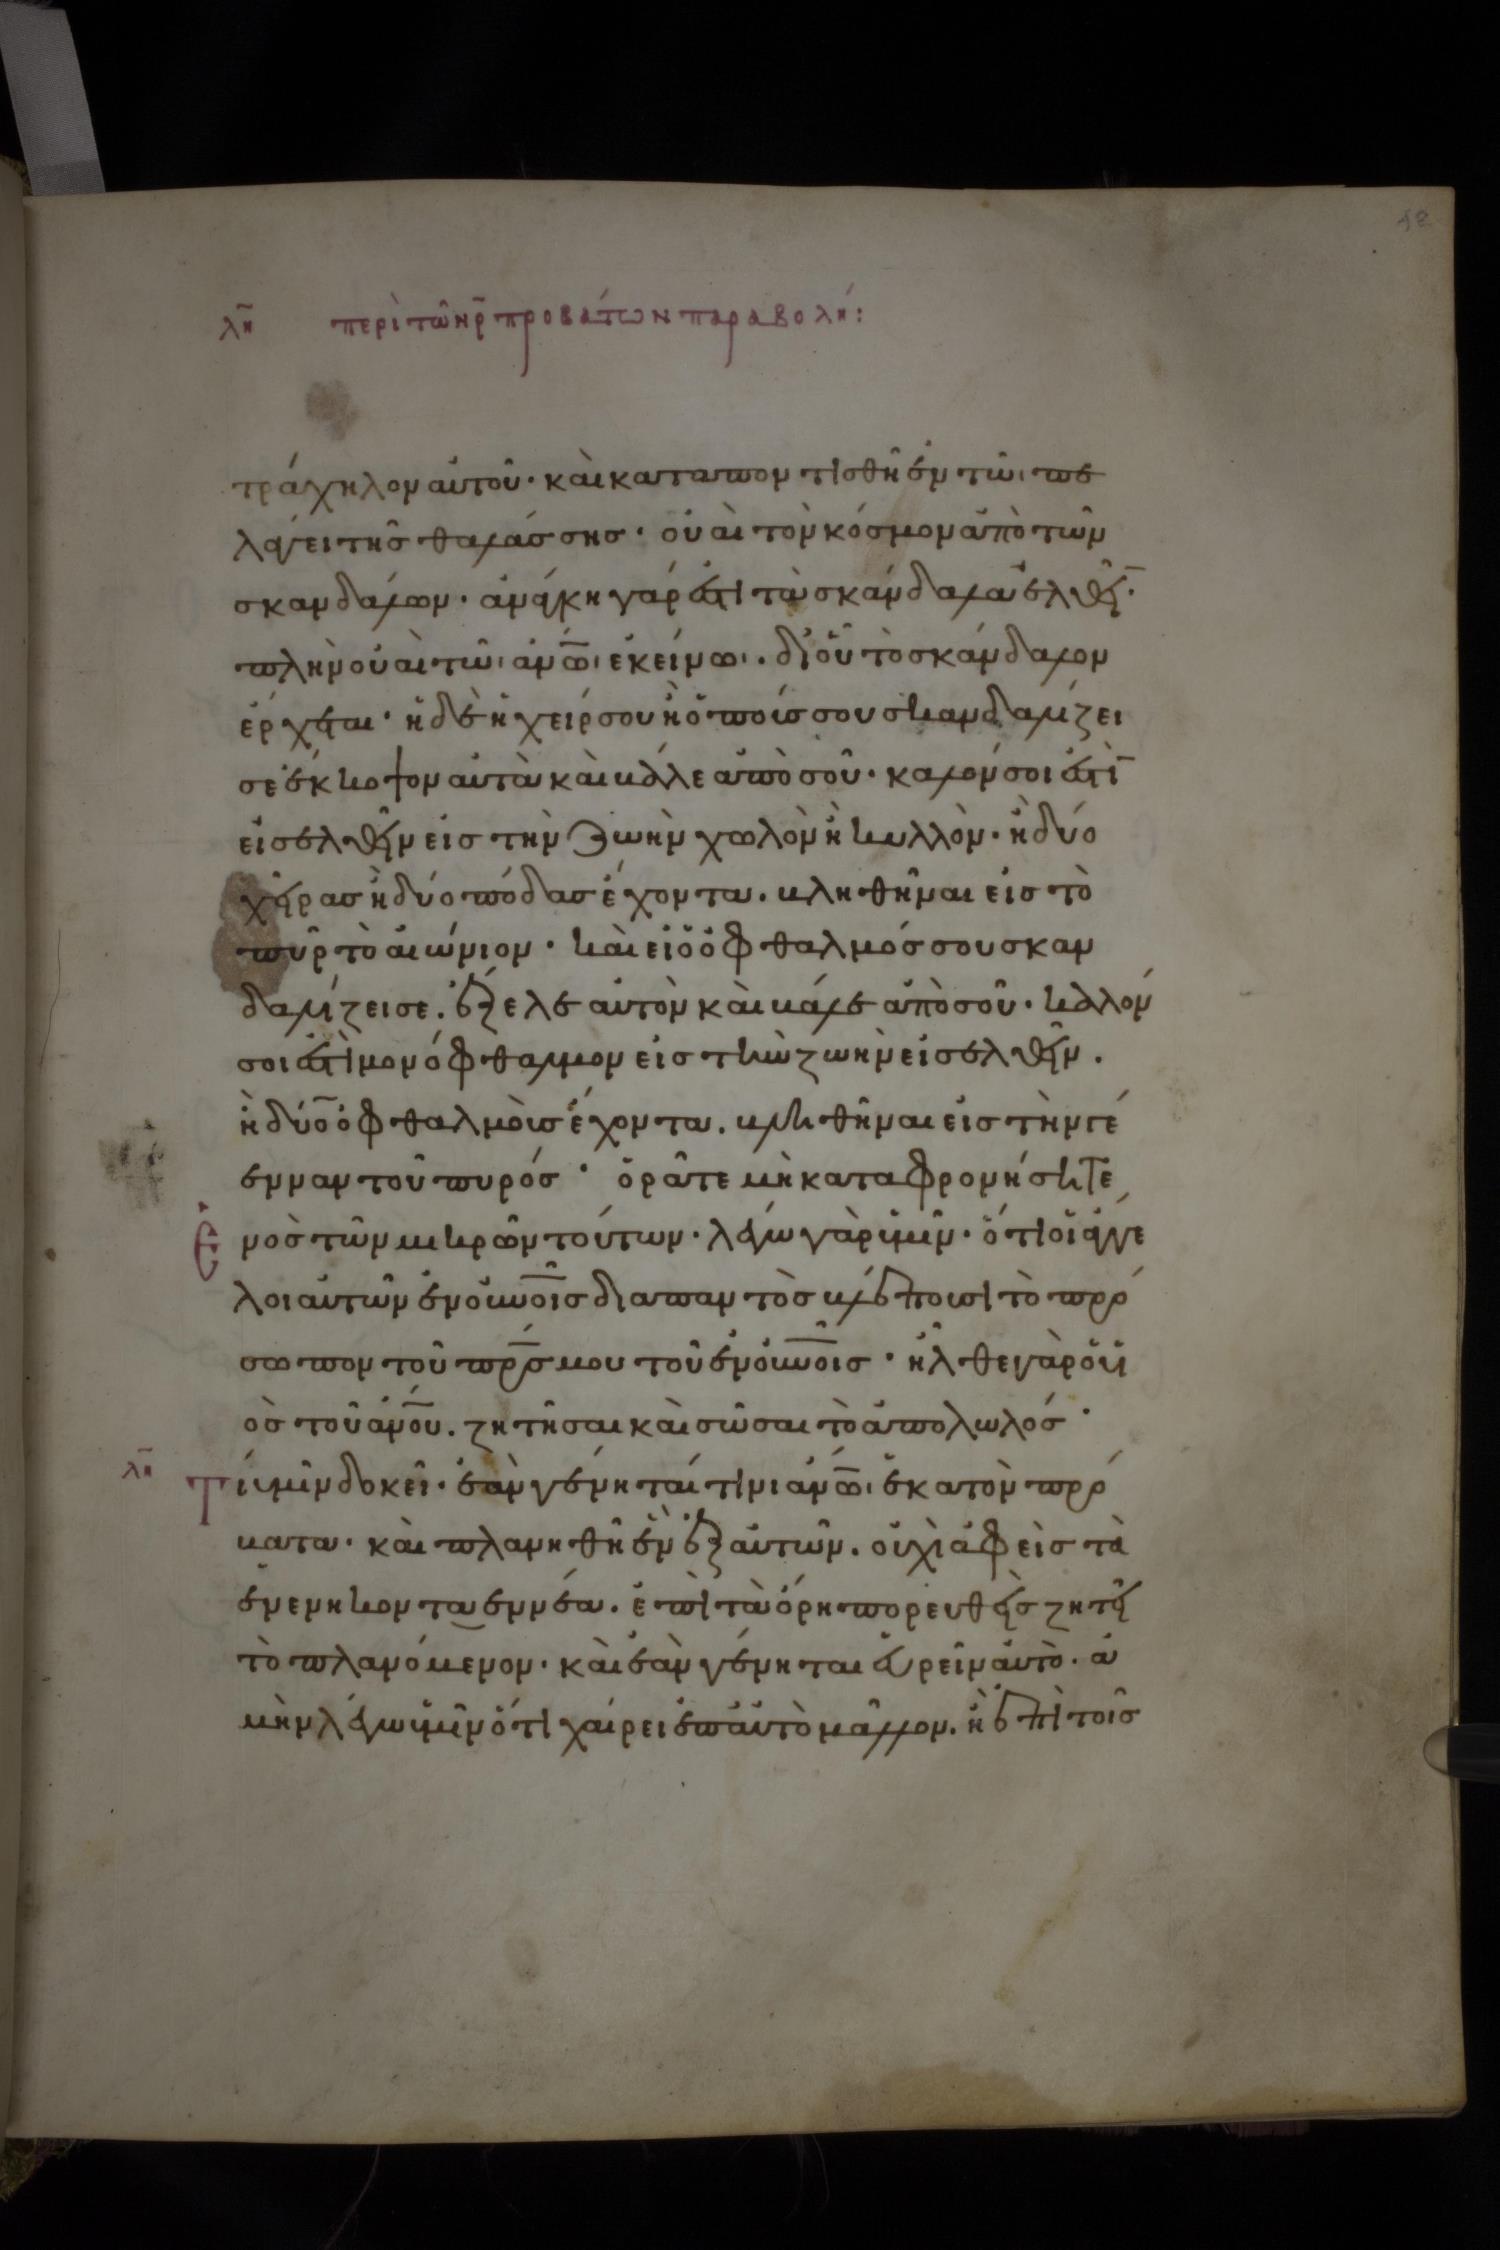 λη περὶ τῶν ρ προβάτων παραβολή:
τράχηλον αὐτοῦ· καὶ καταποντισθῆ ἐν τῶι πε
λάγει τῆς θαλάσσης· οὐαὶ τὸν κόσμον ἀπὸ τῶν
σκανδάλων· ἀνάγκη γάρ ἐστι τὰ σκάνδαλα ἐλθεῖν·
πλὴν οὐαὶ τῶι ἀνω̅ι ἐκείνωι· δι οὗ τὸ σκάνδαλον
ἔρχεται· ἢ δὲ ἡ χείρ σου ἢ ὁ ποῦς σου σκανδαλίζει
σε ἔκκοψον αὐτὰ καὶ βάλε ἀπὸ σοῦ· καλόν σοι ἐστὶ
εἰσελθεῖν εἰς τὴν ζωὴν χωλὸν ἢ κυλλὸν· ἢ δύο
χεῖρας ἢ δύο πόδας ἔχοντα. βληθῆναι εἰς τὸ
πῦρ τὸ αἰώνιον· καὶ εἰ ὁ ὀφθαλμός σου σκαν
δαλίζει σε. ἔξελε αὐτὸν καὶ βάλε ἀπὸ σοῦ· καλόν
σοι ἐστὶ μονόφθαλμον εἰς τὴν ζωὴν εἰσελθεῖν.
ἢ δύο ὀφθαλμοὺς ἔχοντα. βληθῆναι εἰς τὴν γέ
ενναν τοῦ πυρός· ὁρᾶτε μὴ καταφρονήσητε
Ἑνὸς τῶν μικρῶν τούτων· λέγω γὰρ ὑμῖν· ὅτι οἱ ἄγγε
λοι αὐτῶν ἐν οὐνοῖς διαπαντὸς βλέπουσι τὸ πρό
σωπον τοῦ πρ̅ς μου τοῦ ἐν οὐνοῖς· ἦλθε γὰρ ὁ ὑι
ὸς τοῦ ἀνου. ζητῆσαι καὶ σῶσαι τὸ ἀπολωλός·
λη Τί ὑμῖν δοκεῖ· ἐὰν γένηταί τινι ἀνω̅ι ἑκατὸν πρό
βατα· καὶ πλανηθῆ ἓν ἐξ αὐτῶν. οὐχὶ ἀφεὶς τὰ
ἐνενήκοντα ἐννέα. ἐπὶ τὰ ὄρη πορευθεὶς ζητεῖ
τὸ πλανόμενον· καὶ ἐὰν γένηται εὑρεῖν αὐτὸ· ἀ
μὴν λέγω ὑμῖν ὅτι χαίρει ἐπ αὐτὸ μᾶλλον. ἢ ἐπὶ τοῖς